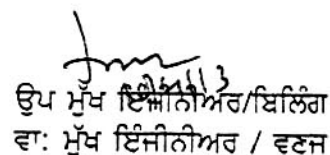 ਉਪ ਮੁੱਖ ਇੰਜੀਨੀਅਰ/ਬਿਲਿੰਗ
ਵਾ: ਮੁੱਖ ਇੰਜੀਨੀਅਰ / ਵਣਜ